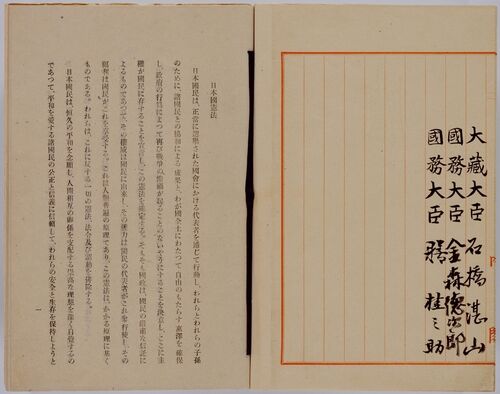 大藏大臣 石橋湛山
國務大臣 金森德次郎
國務大臣 膳 桂之助
日本國憲法
日本國民は、正當に選擧された國會における代表者を通じて行動し、われらとわれらの子孫
のために、諸國民との協和による成果と、わが國全土にわたつて自由のもたらす惠澤を確保
し、政府の行爲によつて再び戰爭の慘禍が起ることのないやうにすることを決意し、ここに主
權が國民に存することを宣言し、この憲法を確定する。そもそも國政は、國民の嚴肅な信託に
よるものであつて、その權威は國民に由來し、その權力は國民の代表者がこれを行使し、その
福利は國民がこれを享受する。これは人類普遍の原理であり、この憲法は、かかる原理に基く
ものである。われらは、これに反する一切の憲法、法令及び詔勅を排除する。
日本國民は、恆久の平和を念願し、人間相互の關係を支配する崇高な理想を深く自覺するの
であつて、平和を愛する諸國民の公正と信義に信賴して、われらの安全と生存を保持しようと
一